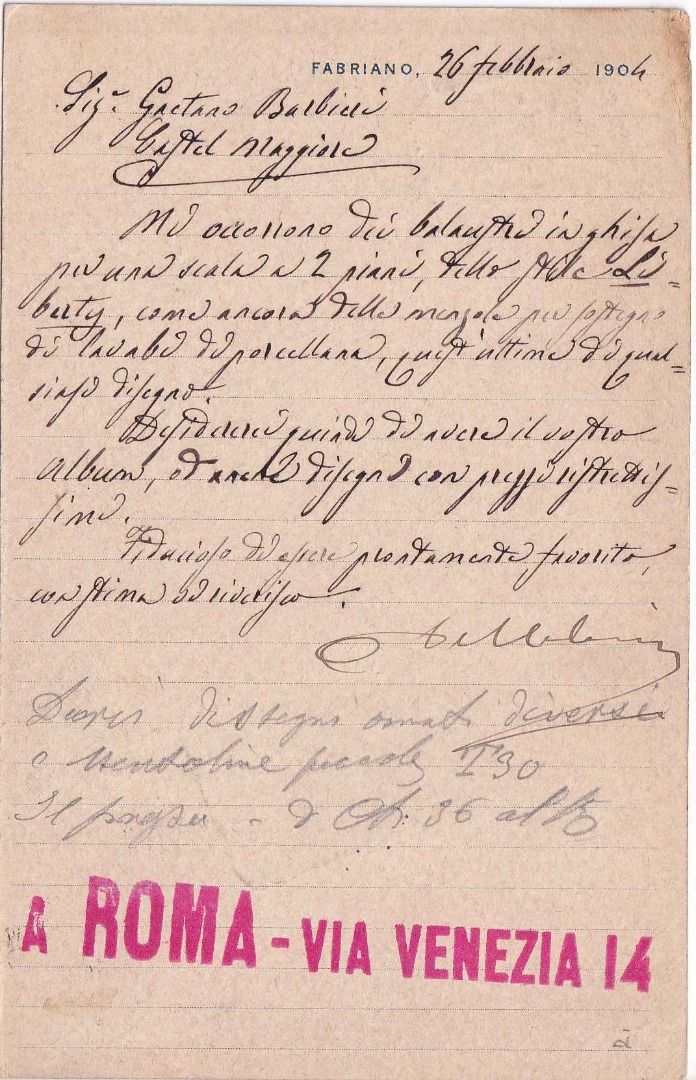 FABRIANO, 26 febbraio 1904
Sig.r Gaetano Barbieri
Castel Maggiore
Mi occorrono dei balaustri in ghisa
per una scala a 2 piani, dello stile Li=
berty, come ancora delle mensole per sostegno
di lavabi di porcellana, quest'ultime di qual=
siasi disegno.
Desidererei quindi di avere il vostro
Album, od anche disegni con prezzi ristrettis=
simi.
Fiducioso di essere prontamente favorito,
con stima vi riverisco.
disegni ornati diversi
mensoline piccole I 30
Il prezzo - 36 al
A ROMA - VIA VENEZIA 14
2.